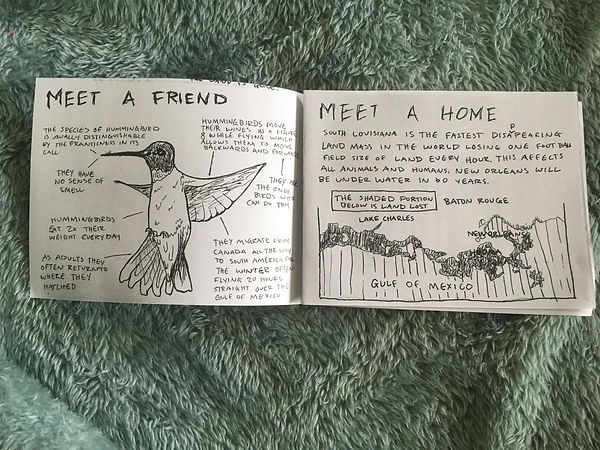 MEET A FRIEND
THE SPECIES OF HUMMINGBIRD
IS USUALLY DISTINGUISHABLE
BY THE FRANTICNESS IN ITS
CALL
THEY HAVE
NO SENSE OF
SMELL
HUMMINGBIRDS
EAT 2X THEIR
WEIGHT EVERYDAY
AS ADULTS THEY
OFTEN RETURN TO
WHERE THEY
HATCHED
HUMMINGBIRDS MOVE
THEIR WINGS IN A FIGURE
8 WHILE FLYING WHICH
ALLOWS THEM TO MOVE
BACKWARDS AND FORWARDS
THEY ARE
THE ONLY
BIRDS WHO
CAN DO THIS
THEY MIGRATE FROM
CANADA ALL THE WAY
TO SOUTH AMERICA FOR
THE WINTER OFTEN
FLYING 20 HOURS
STRAIGHT OVER THE
GULF OF MEXICO
MEET A HOME
SOUTH LOUISIANA IS THE FASTEST DISAPPEARING
LAND MASS IN THE WORLD LOSING ONE FOOTBALL
FIELD SIZE OF LAND EVERY HOUR. THIS AFFECTS
ALL ANIMALS AND HUMANS. NEW ORLEANS WILL
BE UNDER WATER IN 60 YEARS.
THE SHADED PORTION
BELOW IS LAND LOST
BATON ROUGE
LAKE CHARLES
NEW ORLEANS
GULF OF MEXICO